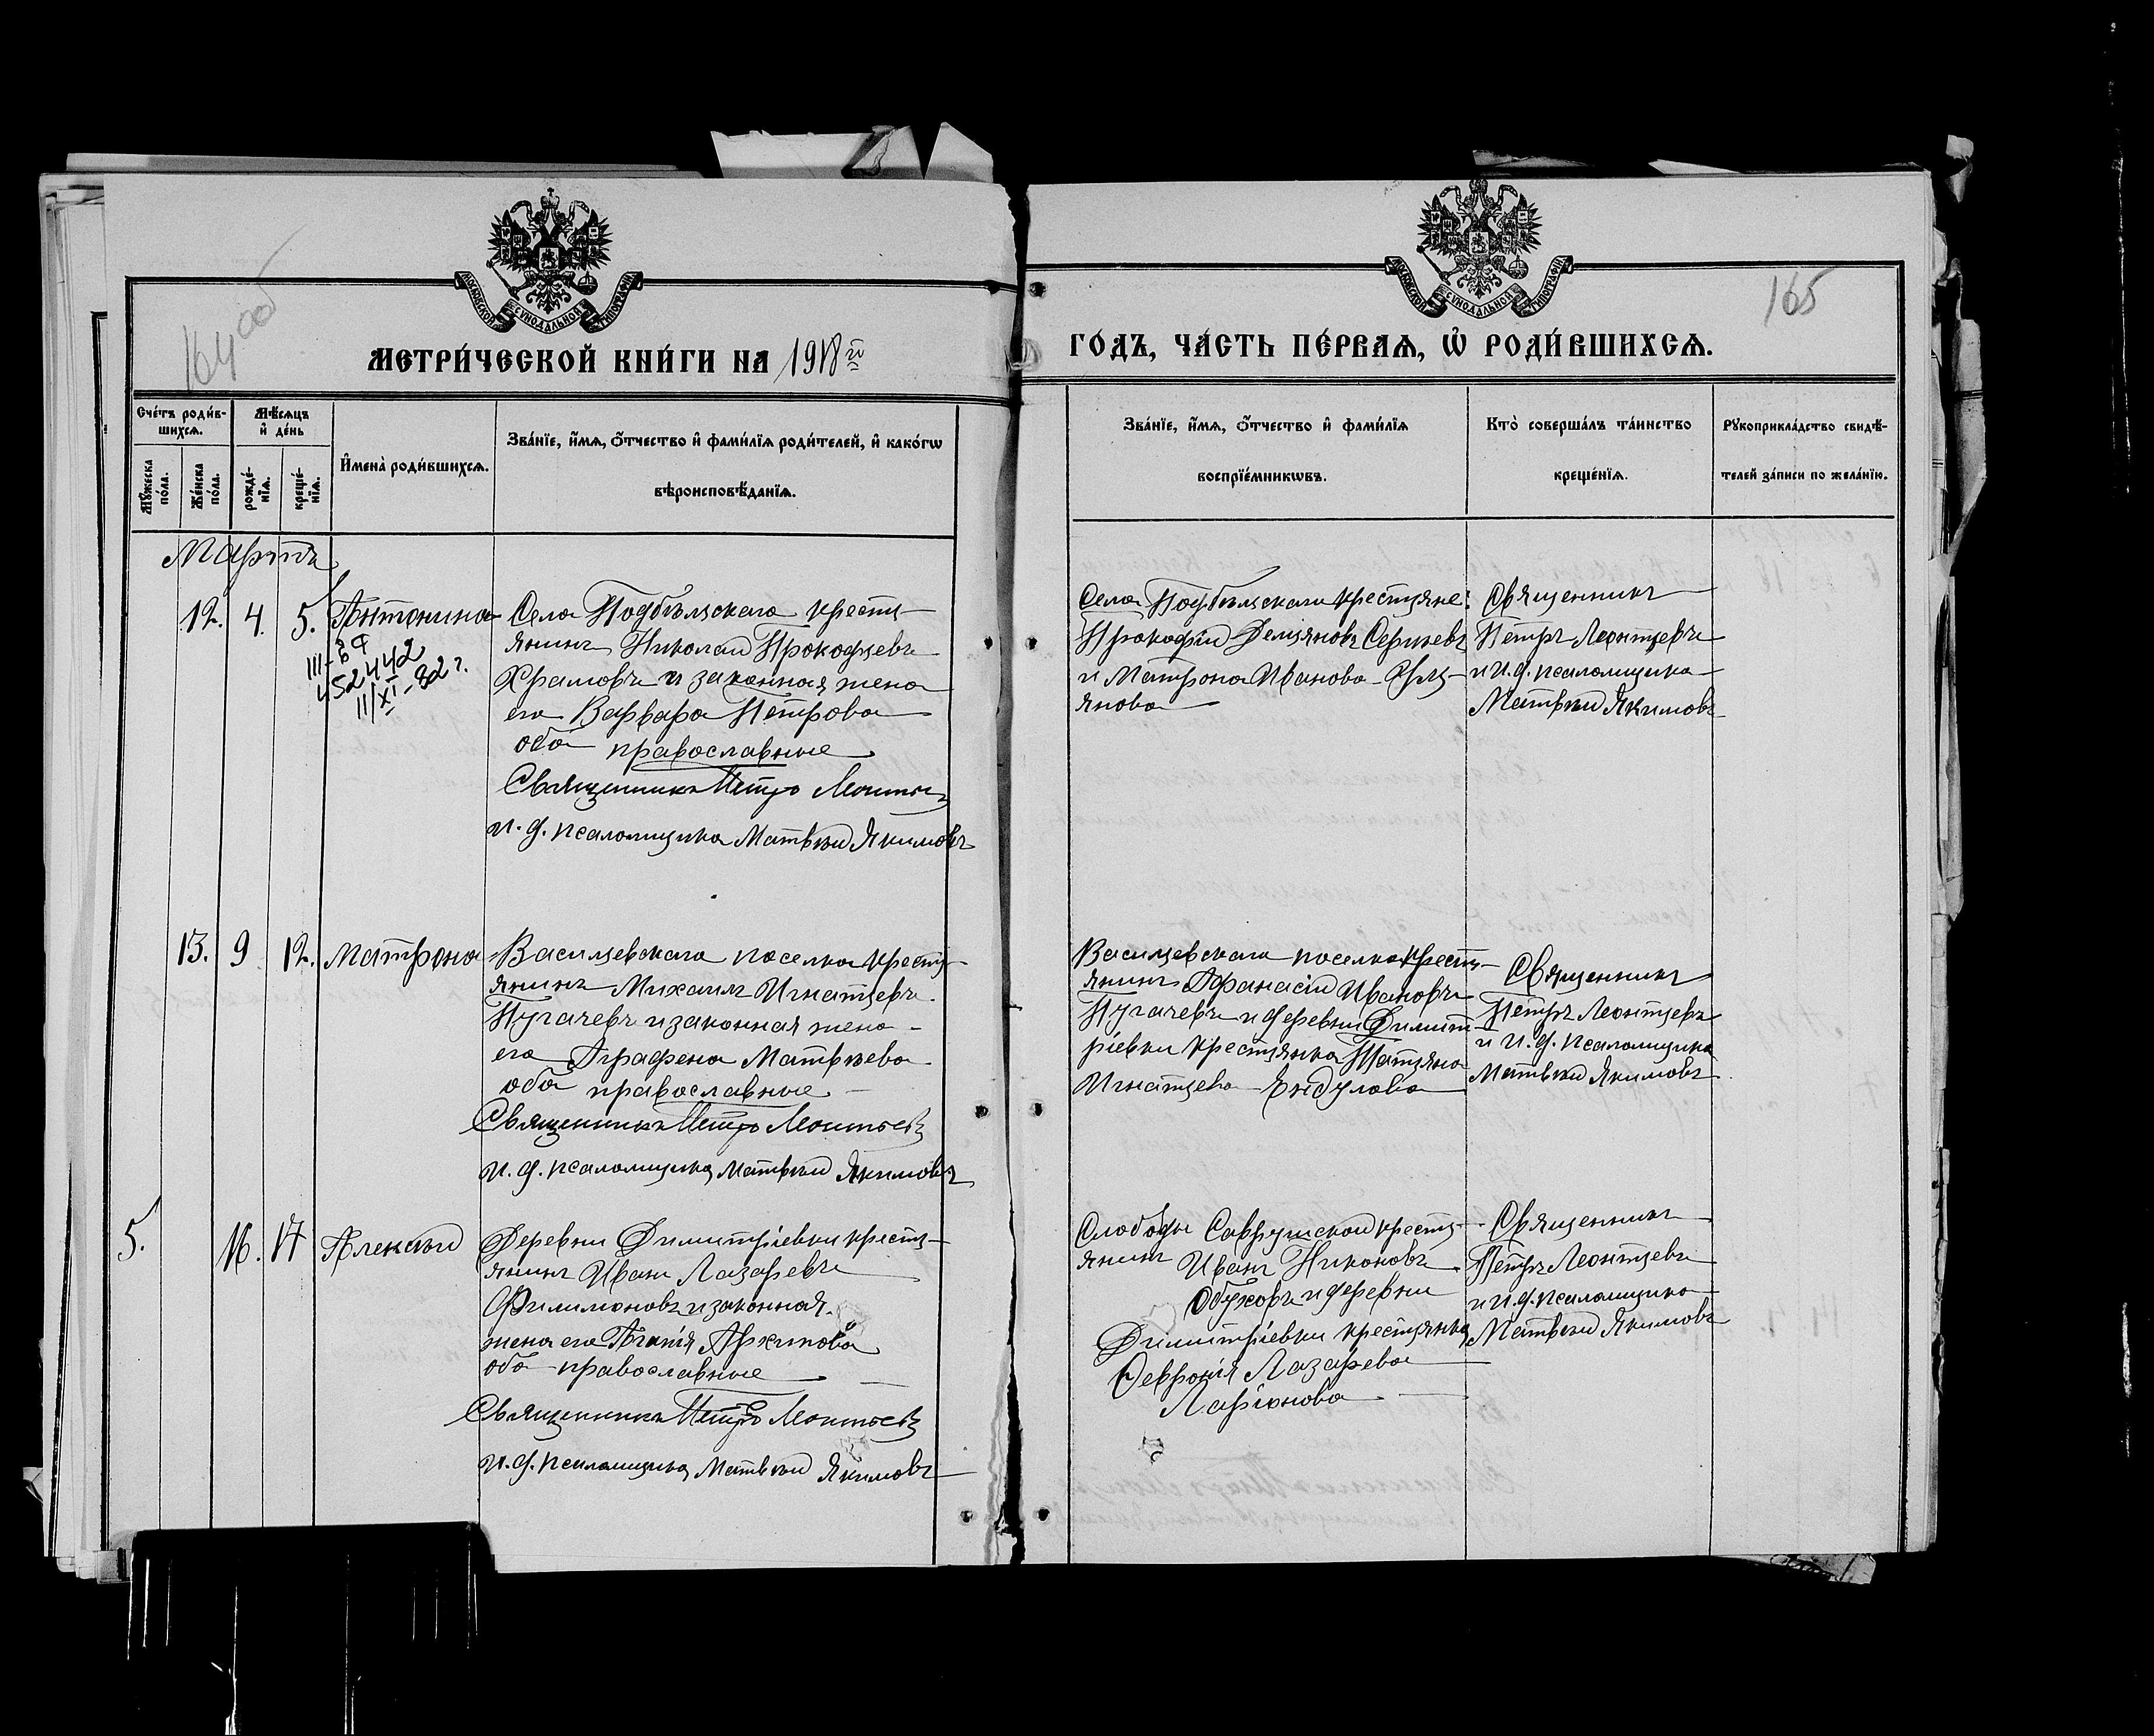 МОСКОВСКОЙ СѴНОДАЛЬНОЙ ТИПОГРАФІИ
МОСКОВСКОЙ СѴНОДАЛЬНОЙ ТИПОГРАФІИ
164 об
165
МЕТРИ́ЧЕСКОЙ КНИ́ГИ НА 1918 й
ГО́ДЪ, ЧА́СТЬ ПЕ́РВАѦ, Ѡ҆ РОДИ́ВШИХСѦ.
Сче́тъ роди́в-
шихсѧ.
Мѣ́сѧцъ
и҆ де́нь
Мꙋ́жеска по́ла.
Же́нска по́ла.
рожде́-
нїѧ.
креще́-
нїѧ.
И҆мена̀ роди́вшихсѧ.
Зва́нїе, и҆́мѧ, ѻ҆́тчество и҆ фами́лїѧ роди́телей, и҆ како́гѡ
вѣроисповѣ́данїѧ.
Зва́нїе, и҆́мѧ, ѻ҆́тчество и҆ фами́лїѧ
воспрїе́мникѡвъ.
Кто̀ соверша́лъ та́инство
креще́нїѧ.
Рꙋкоприкла́дство свидѣ́-
телей за́писи по жела́нїю.
Мартъ
12. 4. 5. Антонина
452442
11/XI-82 г.
Села Подбѣльскаго кресть-
янинъ Николай Прокофьевъ
Храмовъ и законная жена
его Варвара Петрова
оба православные
Священникъ Петръ Леонтьевъ
и. д. псаломщика Матвѣй Якимовъ
Села Подбѣльскаго крестьяне:
Прокофій Демьяновъ Сергѣевъ
и Матрона Иванова
янова
Священникъ
Петръ Леонтьевъ
и и. д. псаломщика
Матвѣй Якимовъ
13. 9 12. Матрона
Васильевскаго поселка кресть-
янинъ Михаилъ Игнатьевъ
Пугачевъ и законная жена
его Аграфена Матвѣева
оба православные
Священникъ Петръ Леонтьевъ
и. д. псаломщика Матвѣй Якимовъ
Васильевскаго поселка кресть-
янинъ Афанасій Ивановъ
Пугачевъ и деревни Димит-
ріевки крестьянка Татьяна
Игнатьева Ендулова
Священникъ
Петръ Леонтьевъ
и и. д. псаломщика
Матвѣй Якимовъ
5. 16. 17 Алексѣй
Деревни Димитріевки кресть-
янинъ Иванъ Лазаревъ
Филимоновъ и законная
жена его Агапія Архипова
оба православные
Священникъ Петръ Леонтьевъ
и. д. псаломщика Матвѣй Якимовъ
Слободы Саврушской кресть-
янинъ Иванъ Никоновъ
Обуховъ и деревни
Димитріевки крестьянка
Ѳевронія Лазарева
Ларіонова
Священникъ
Петръ Леонтьевъ
и и. д. псаломщика
Матвѣй Якимовъ